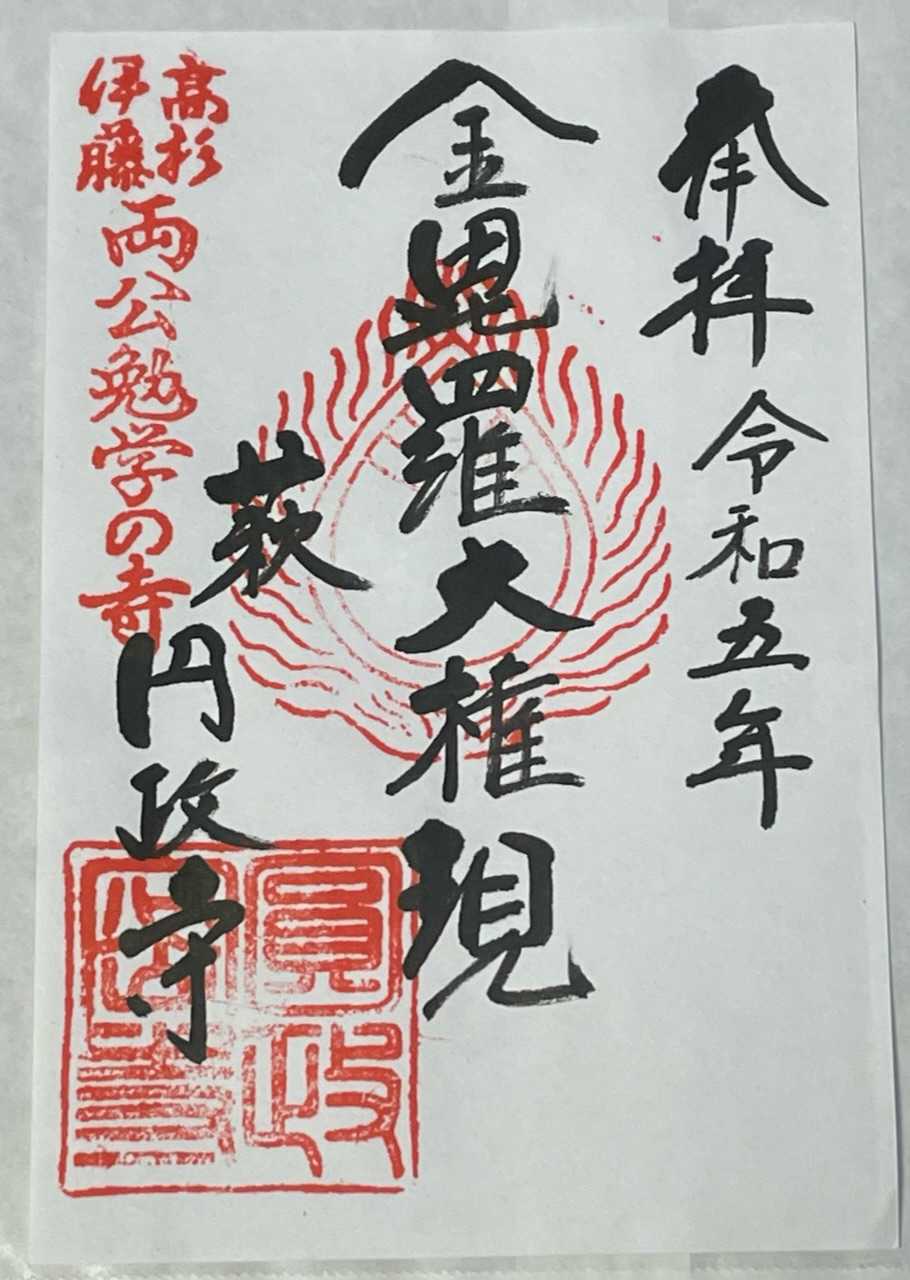 奉拝 令和五年
金毘羅大権現
萩 円政寺
高杉
伊藤
両公勉学の寺